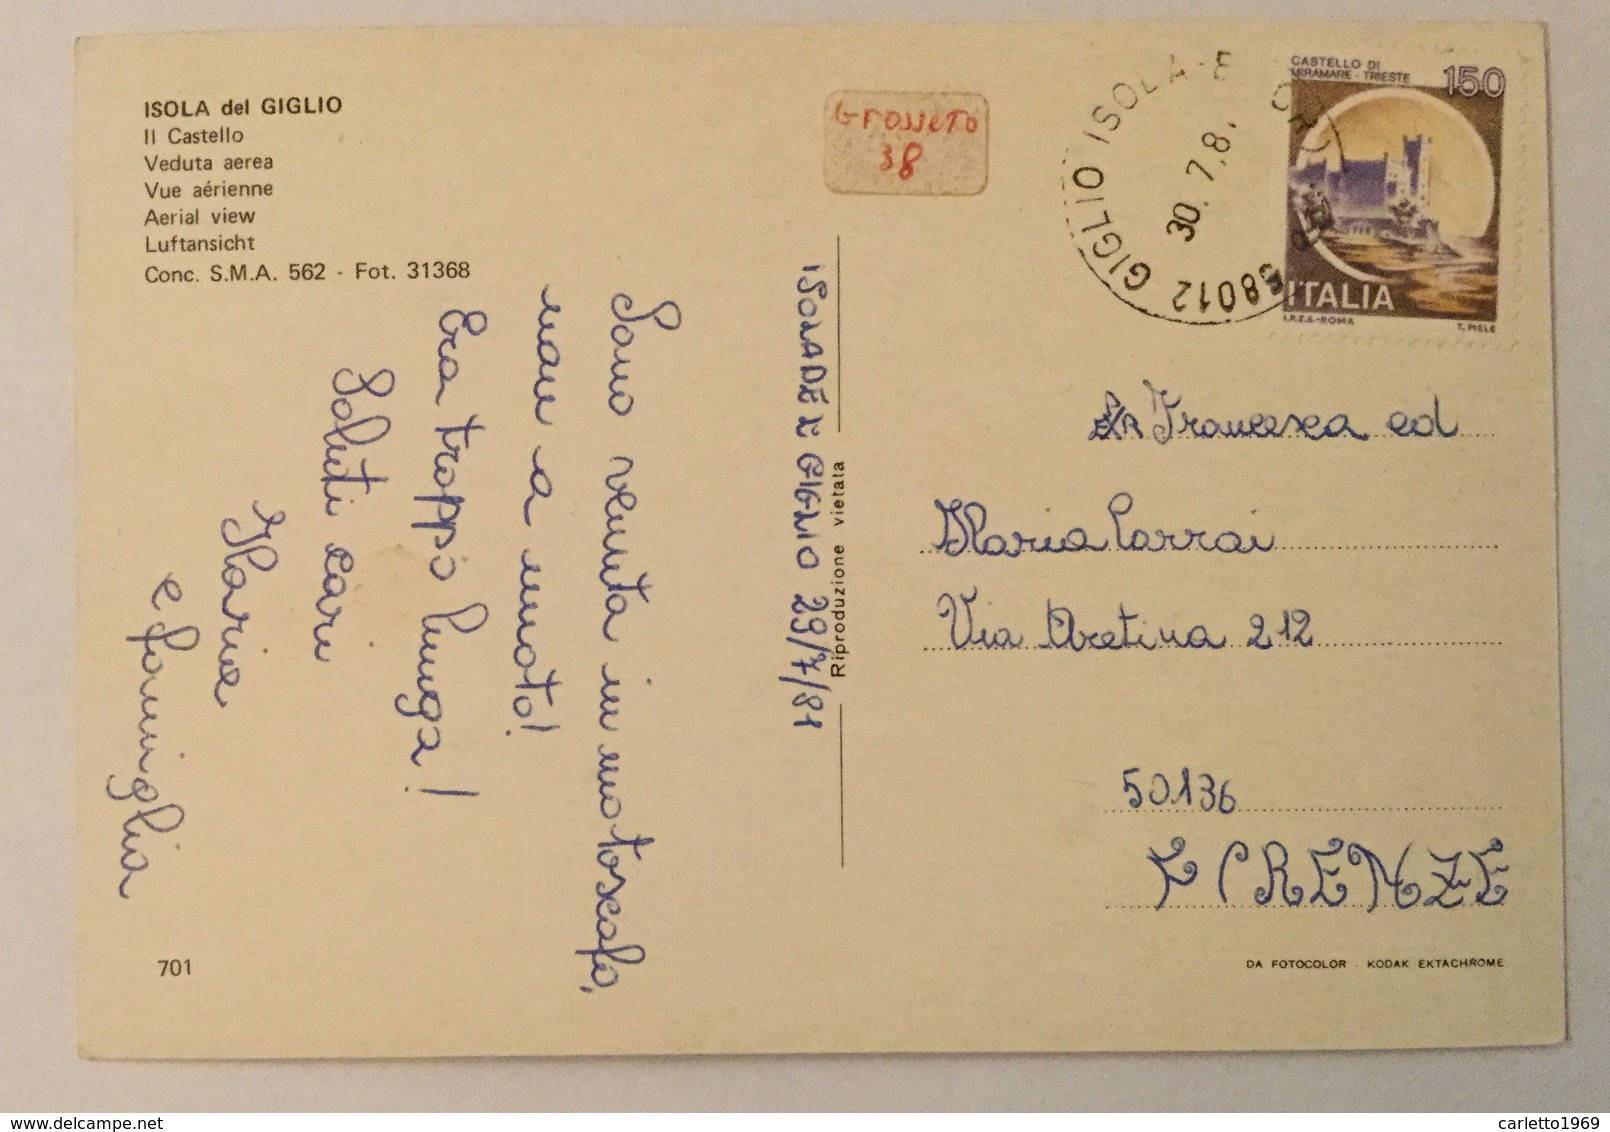 ISOLA del GIGLIO
Il Castello
Veduta aerea
Vue aérienne
Aerial view
Luftansicht
Conc. S.M.A. 562 - Fot. 31368
GROSSETO
38
58012 GIGLIO ISOLA
30.7.8
CASTELLO DI
MIRAMARE - TRIESTE
150
ITALIA
I.P.Z.S.-ROMA
T. MELE
ISOLA DEL GIGLIO 29/7/81
Sono venuta in motoscafo,
non a nuoto!
Era troppo lunga!
Saluti cari
Ilaria
e famiglia
Riproduzione vietata
Francesca ed
Ilaria Carrai
Via Aretina 212
50136
FIRENZE
701
DA FOTOCOLOR - KODAK EKTACHROME
delcampe.net
carletto1969